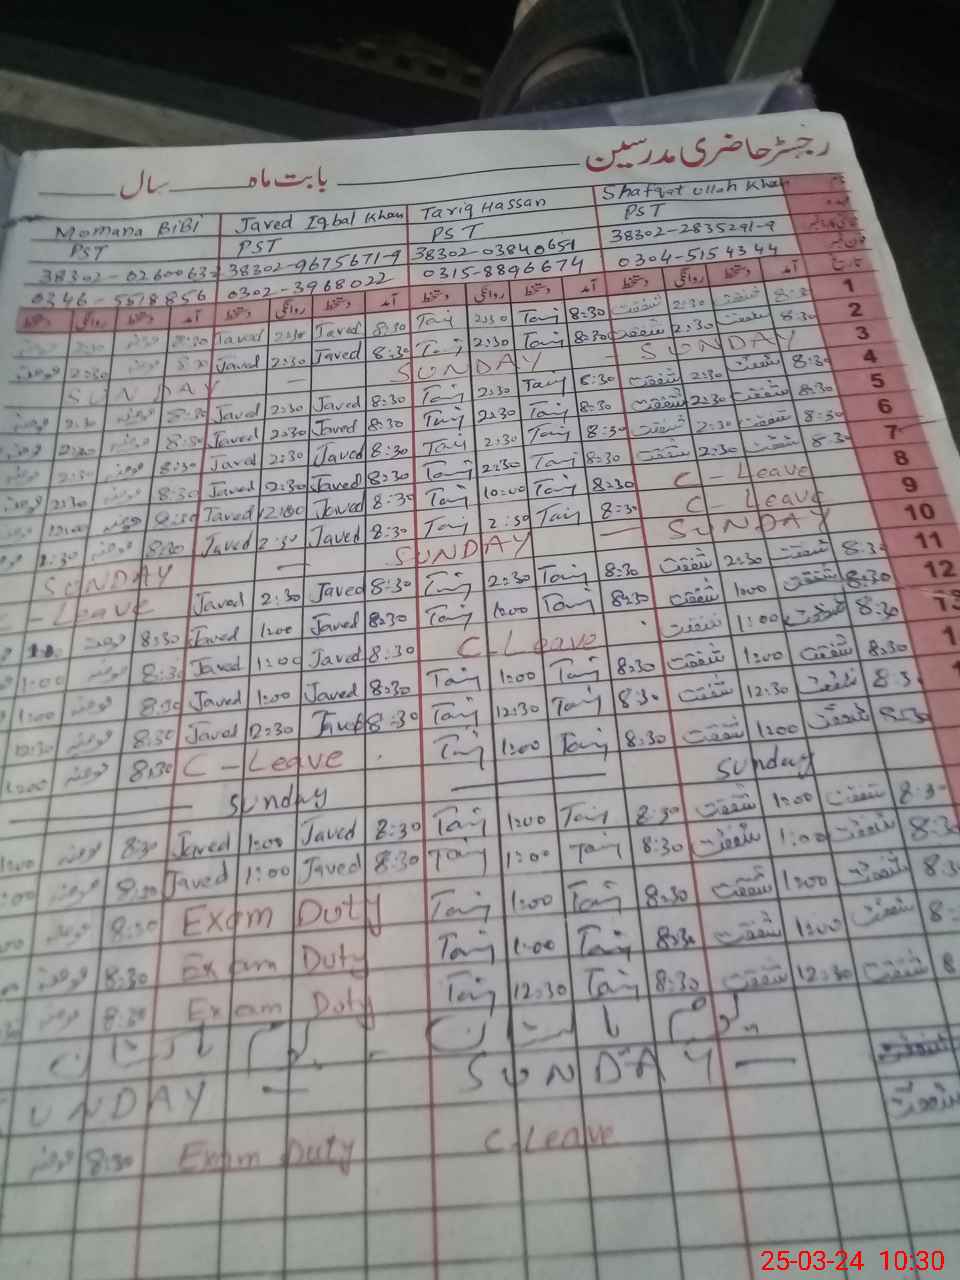 رجسٹر حاضری مدرسین ______ بابت ماہ ______ سال ______
Momana BiBi Javed Iqbal Khan Tariq Hassan Shafqat Ullah Khan نام
PST PST PST PST عہدہ
38302-0260063 38302-9675671-9 38302-0384065 38302-2835291-9
0346-5578856 0302-3968022 0315-8896674 0304-5154344
دستخط روانگی دستخط آمد دستخط روانگی دستخط آمد دستخط روانگی دستخط آمد دستخط روانگی دستخط آمد تاریخ
2:30 8:30 Javed 2:30 Javed 8:30 Tariq 2:30 Tariq 8:30 شفقت 2:30 شفقت 8:30 1
2:30 8:30 Javed 2:30 Javed 8:30 Tariq 2:30 Tariq 8:30 شفقت 2:30 شفقت 8:30 2
SUNDAY — SUNDAY — SUNDAY 3
2:30 8:30 Javed 2:30 Javed 8:30 Tariq 2:30 Tariq 8:30 شفقت 2:30 شفقت 8:30 4
2:30 8:30 Javed 2:30 Javed 8:30 Tariq 2:30 Tariq 8:30 شفقت 2:30 شفقت 8:30 5
2:30 8:30 Javed 2:30 Javed 8:30 Tariq 2:30 Tariq 8:30 شفقت 2:30 شفقت 8:30 6
2:30 8:30 Javed 2:30 Javed 8:30 Tariq 2:30 Tariq 8:30 شفقت 2:30 شفقت 8:30 7
12:00 8:30 Javed 12:00 Javed 8:30 Tariq 10:00 Tariq 8:30 C-Leave 8
2:30 8:30 Javed 2:30 Javed 8:30 Tariq 2:30 Tariq 8:30 C-Leave 9
SUNDAY — SUNDAY — SUNDAY 10
C-Leave Javed 2:30 Javed 8:30 Tariq 2:30 Tariq 8:30 شفقت 2:30 شفقت 8:30 11
8:30 Javed 1:00 Javed 8:30 Tariq 1:00 Tariq 8:30 شفقت 1:00 شفقت 8:30 12
1:00 8:30 Javed 1:00 Javed 8:30 C-Leave شفقت 1:00 شفقت 8:30 13
1:00 8:30 Javed 1:00 Javed 8:30 Tariq 1:00 Tariq 8:30 شفقت 1:00 شفقت 8:30 1
12:30 8:30 Javed 12:30 Javed 8:30 Tariq 12:30 Tariq 8:30 شفقت 12:30 شفقت 8:30 1
1:00 8:30 C-Leave Tariq 1:00 Tariq 8:30 شفقت 1:00 شفقت 8:30
— Sunday — — Sunday
1:00 8:30 Javed 1:00 Javed 8:30 Tariq 1:00 Tariq 8:30 شفقت 1:00 شفقت 8:30
:00 8:30 Javed 1:00 Javed 8:30 Tariq 1:00 Tariq 8:30 شفقت 1:00 شفقت 8:30
8:30 Exam Duty Tariq 1:00 Tariq 8:30 شفقت 1:00 شفقت 8:3
8:30 Exam Duty Tariq 1:00 Tariq 8:30 شفقت 1:00 شفقت 8:
8:30 Exam Duty Tariq 12:30 Tariq 8:30 شفقت 12:30 شفقت 8
یوم پاکستان یوم پاکستان
UNDAY — SUNDAY — شفقت
8:30 Exam Duty C-Leave شفقت
25-03-24 10:30